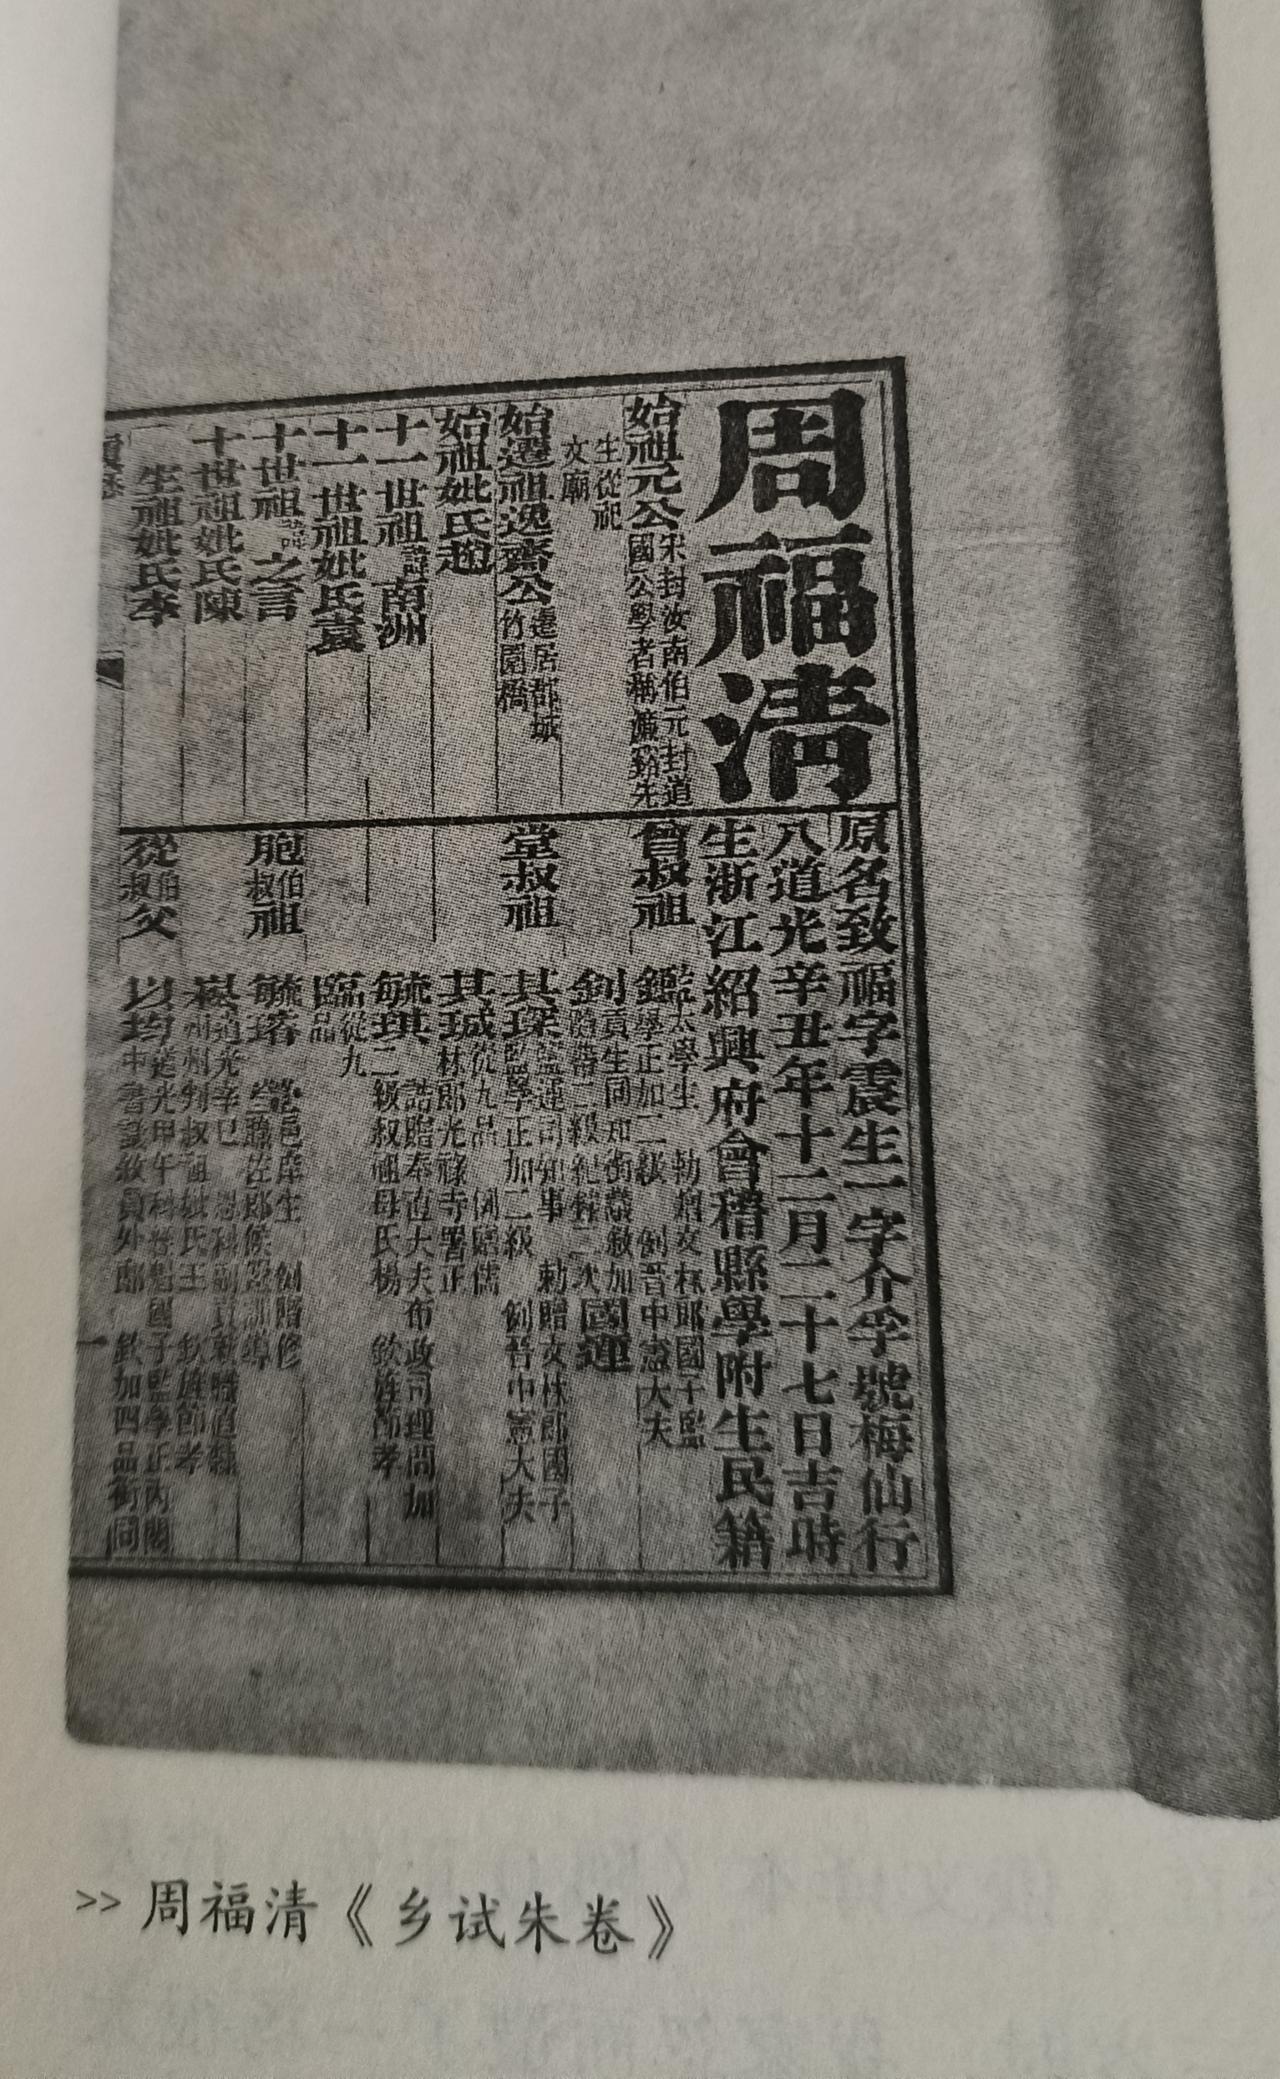 周福清
原名致福字震生一字介孚號梅仙行
八道光辛丑年十二月二十七日吉時
生浙江紹興府會稽縣學附生民籍
始祖元公宋封汝南伯元封道
國公學者稱濂谿先
生從祀
文廟
始遷祖逸齋公遷居郡城
竹園橋
始祖妣氏趙
十一世祖諱南洲
十一世祖妣氏袁
十世祖諱之言
十世祖妣氏陳
生祖妣氏李
曾叔祖
鑑學正加二級 例晉中憲大夫
監太學生 勅贈文林郎國子監
釗貢生同知銜議敘加
隨帶二級紀錄二次
國運
堂叔祖
其琛監運司知事 勅贈文林郎國子
監學正加二級 例晉中憲大夫
其珹從九品
林郎光祿寺署正
毓琪 誥贈奉直大夫布政司理問加
二級叔祖母氏楊 欽旌節孝
臨從九
品
胞伯叔祖
從伯叔父
以均
中書議敘員外郎 欽加四品銜同
一
>> 周福清《乡试朱卷》